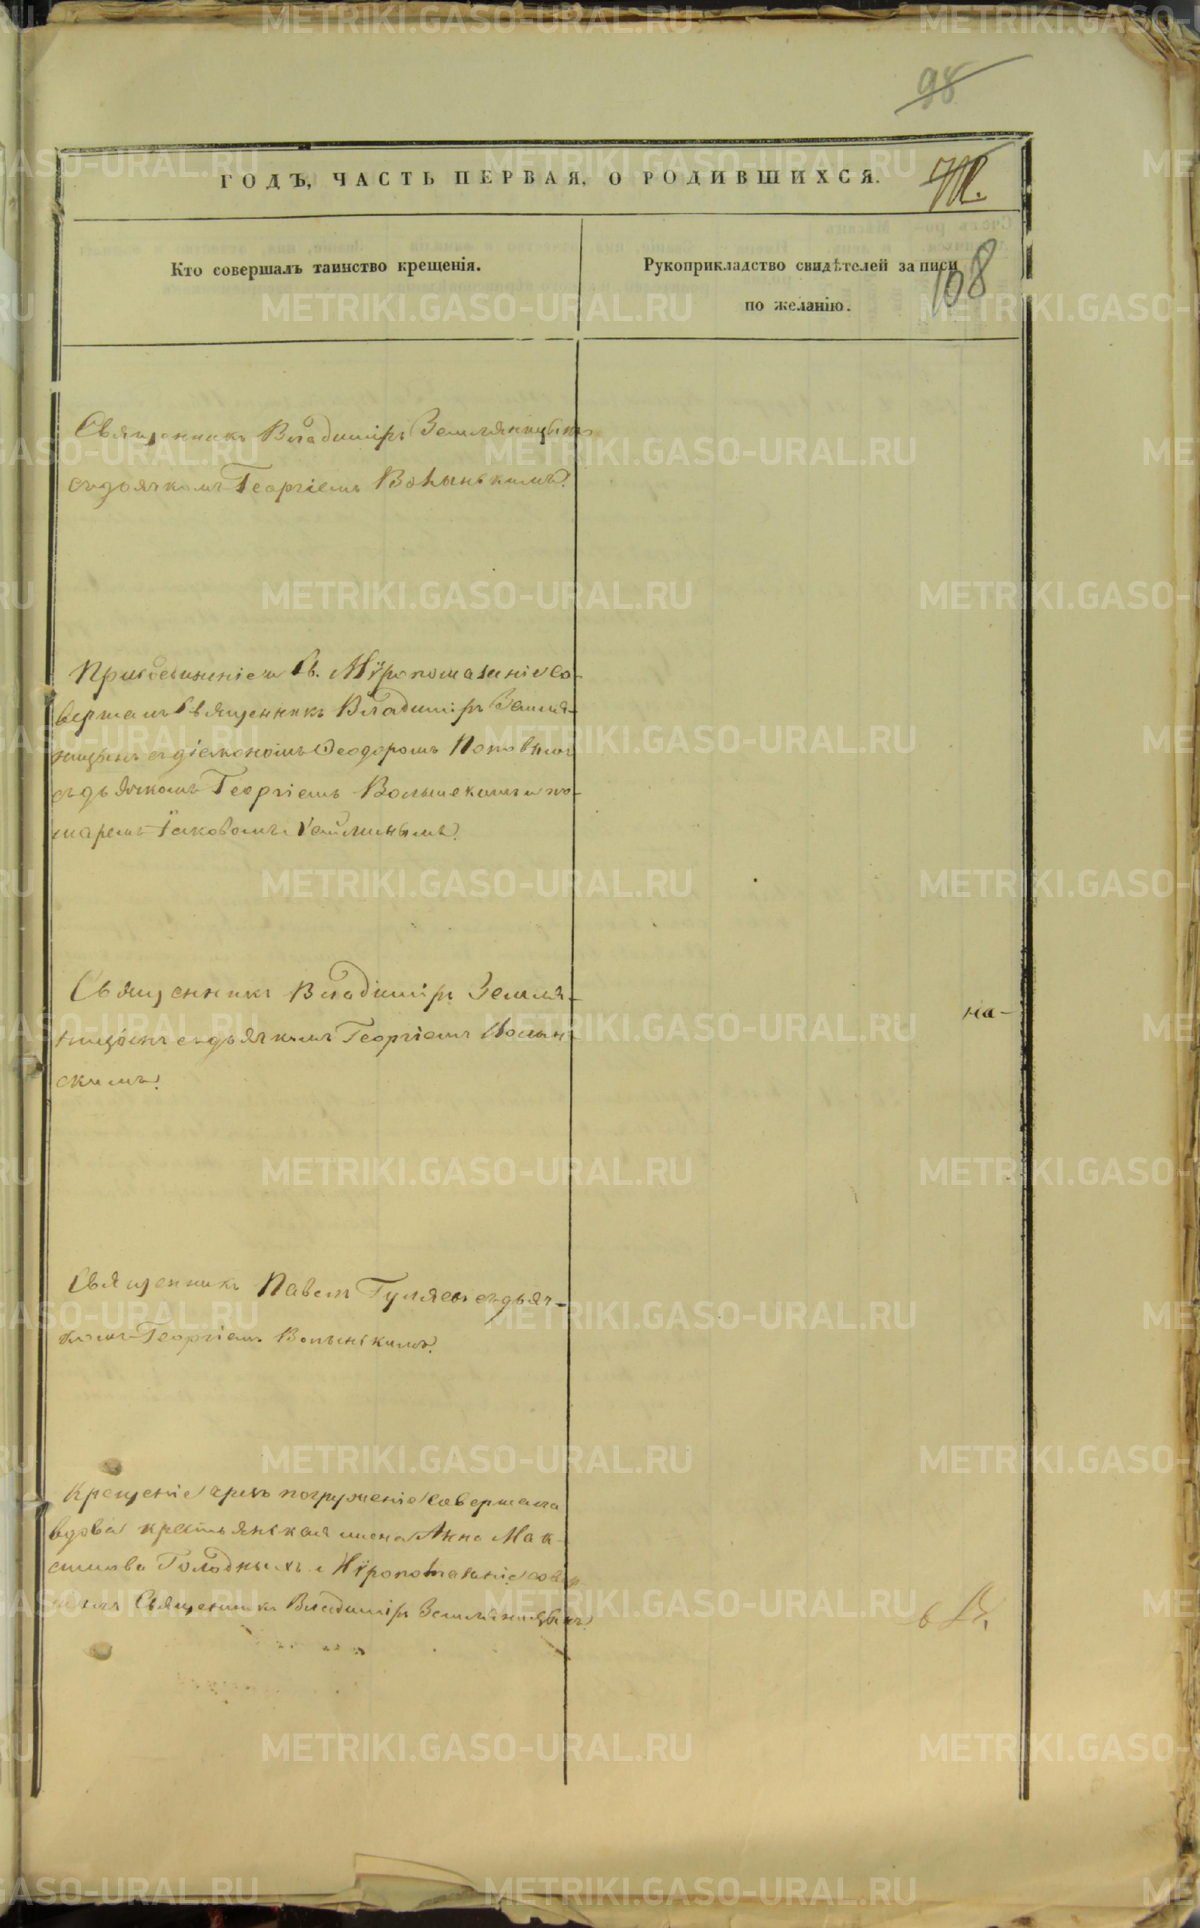 98
ГОДЪ, ЧАСТЬ ПЕРВАЯ, О РОДИВШИХСЯ.
Кто совершалъ таинство крещенія.
Рукоприкладство свидѣтелей записи
по желанію.
108
Священникъ Владиміръ Земляницынъ
съ дьячкомъ Георгіемъ Волынскимъ.
Присоединеніе и Св. Мѵропомазаніе со-
вершалъ Священникъ Владиміръ Земля-
ницынъ съ діакономъ Ѳеодоромъ Поповымъ
съ дьячкомъ Георгіемъ Волынскимъ и по-
маремъ Іаковомъ
Священникъ Владиміръ Земля-
ницынъ съ дьячкомъ Георгіемъ Волын-
скимъ.
на-
Священникъ Павелъ Гуляевъ съ дьяч-
комъ Георгіемъ Волынскимъ.
Крещеніе чрезъ погруженіе совершала
вдова крестьянская жена Анна Мак-
симова Голодныхъ а Мѵропомазаніе совер
шалъ Священникъ Владиміръ Земляницынъ.
METRIKI.GASO-URAL.RU